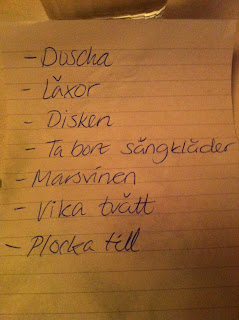 - Duscha
- Läxor
- Disken
- Ta bort sängkläder
- Marsvinen
- Vika tvätt
- Plocka till